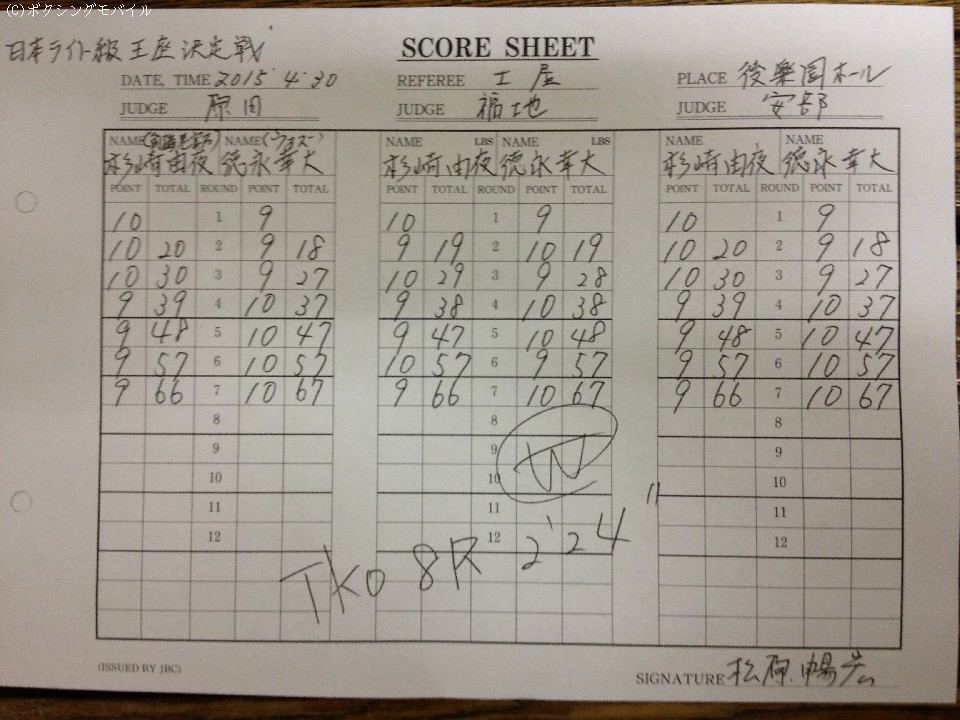 (C)ボクシングモバイル
日本ライト級王座決定戦
SCORE SHEET
DATE, TIME 2015 4·30 REFEREE 土屋 PLACE 後楽園ホール
JUDGE 原田 JUDGE 福地 JUDGE 安部
NAME NAME (ヨネクラ) NAME LBS NAME LBS NAME NAME
杉崎由夜 徳永幸大 杉崎由夜 徳永幸大 杉崎由夜 徳永幸大
POINT TOTAL ROUND POINT TOTAL POINT TOTAL ROUND POINT TOTAL POINT TOTAL ROUND POINT TOTAL
10 1 9 10 1 9 10 1 9
10 20 2 9 18 9 19 2 10 19 10 20 2 9 18
10 30 3 9 27 10 29 3 9 28 10 30 3 9 27
9 39 4 10 37 9 38 4 10 38 9 39 4 10 37
9 48 5 10 47 9 47 5 10 48 9 48 5 10 47
9 57 6 10 57 10 57 6 9 57 9 57 6 10 57
9 66 7 10 67 9 66 7 10 67 9 66 7 10 67
8 8 8
9 9 9
10 10 W 10
11 11 11
12 12 12
TKO 8R 2'24"
(ISSUED BY JBC)
SIGNATURE 松原